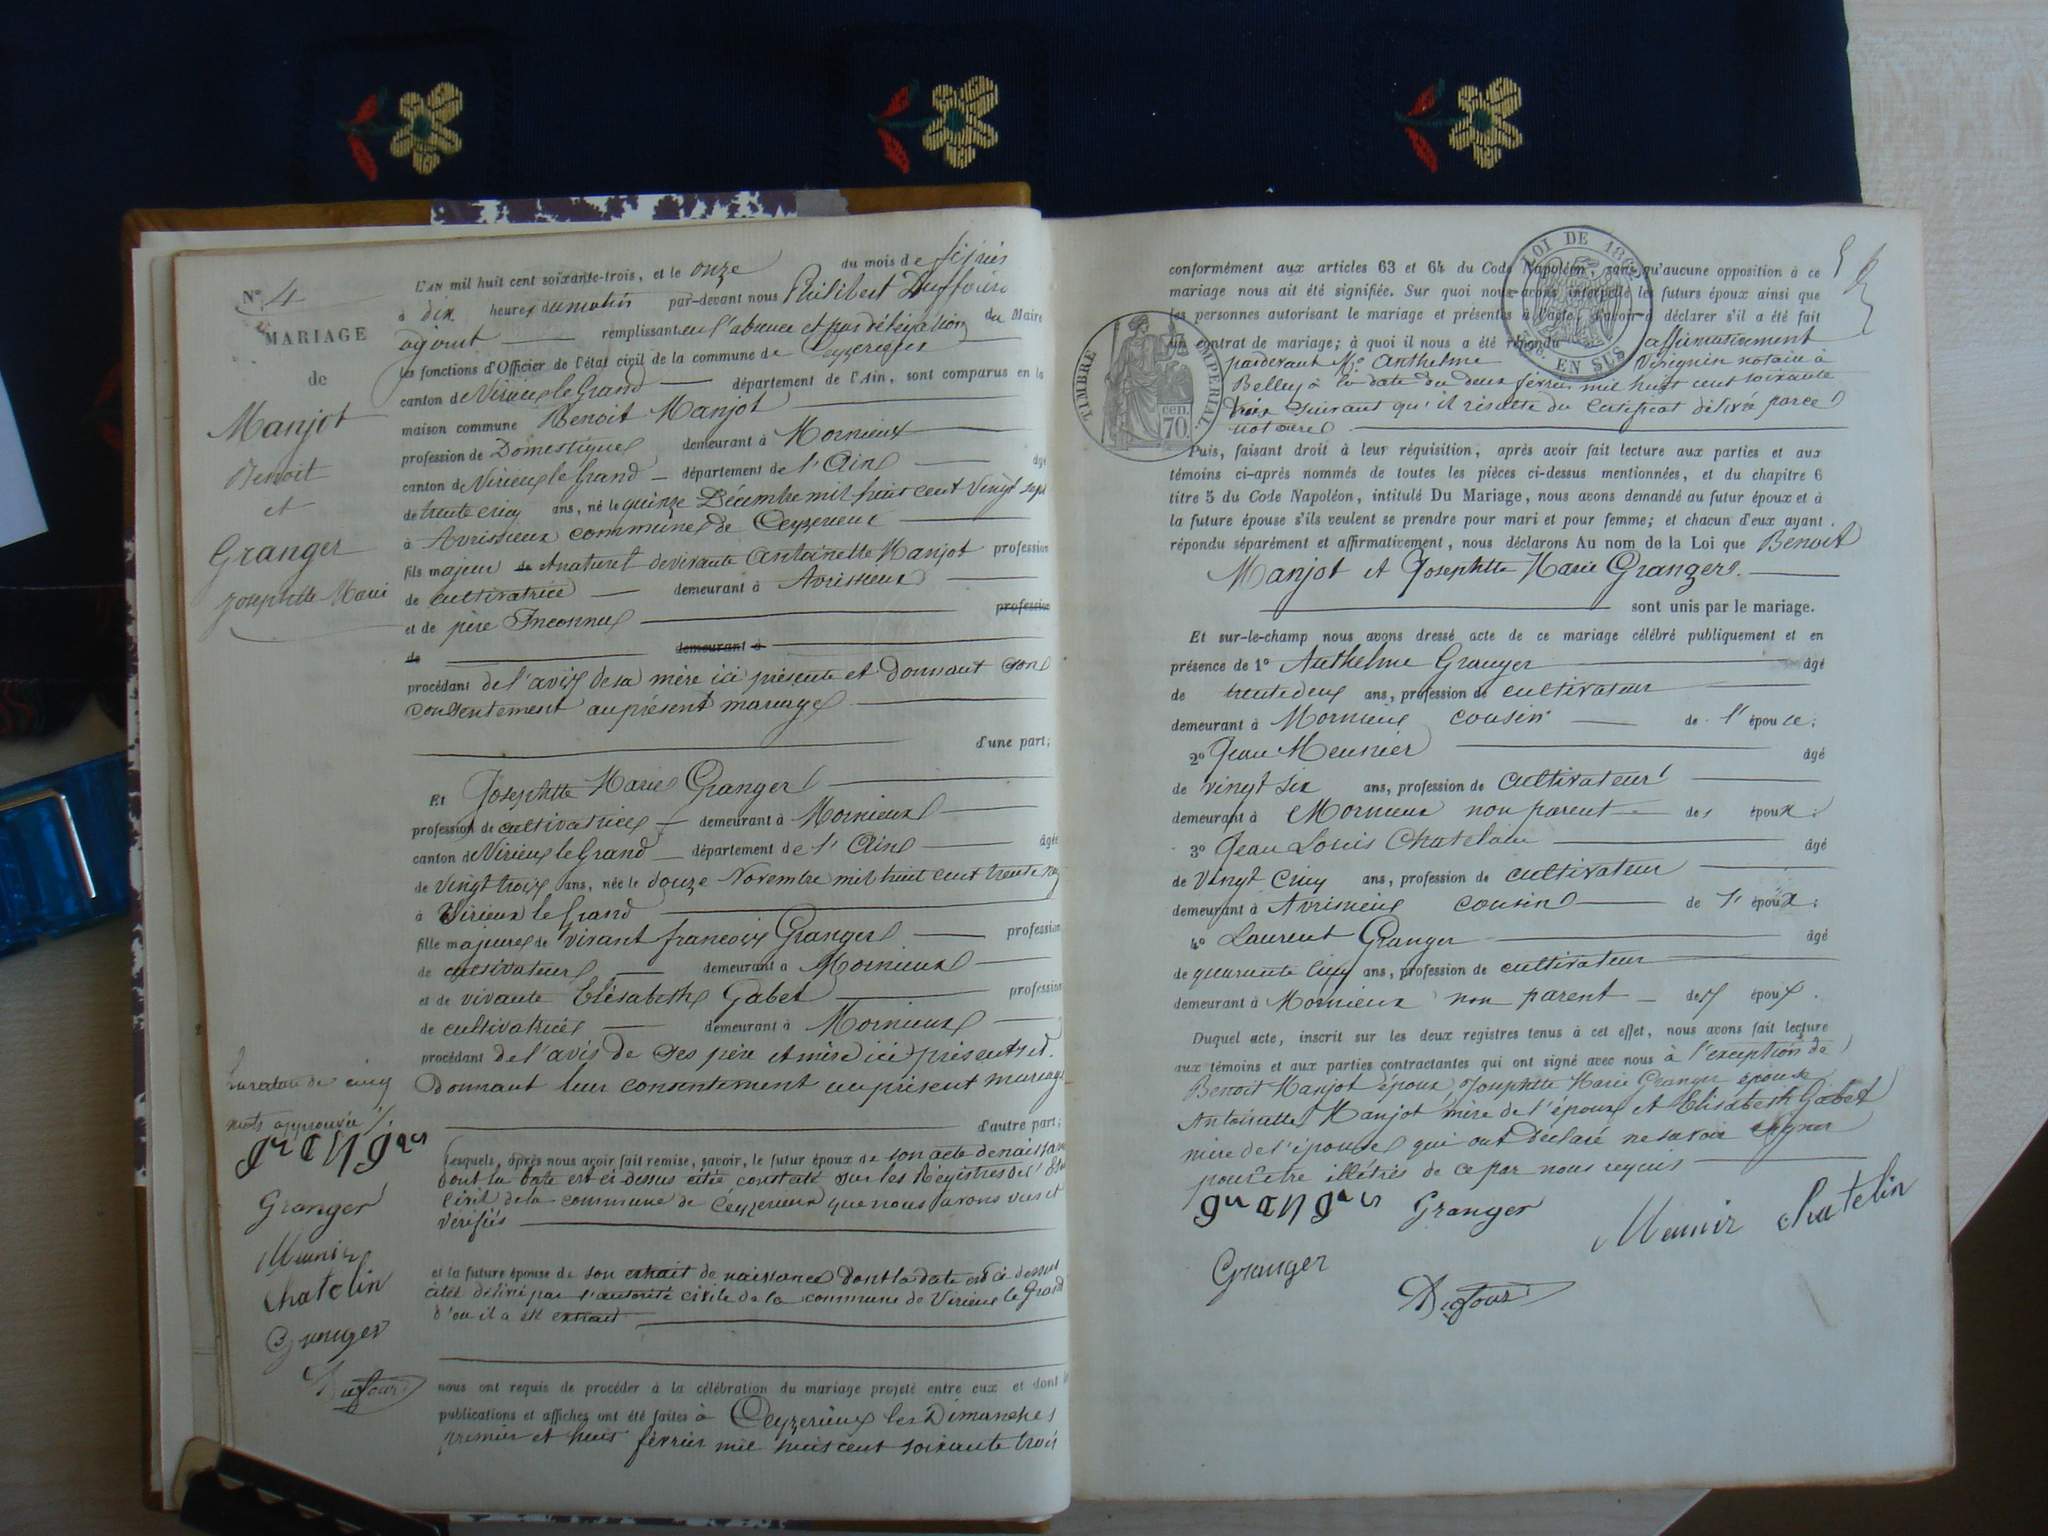 N° 4
MARIAGE
de
Manjot
Benoit
et
Granger
Josephtte Marie
L'AN mil huit cent soixante-trois, et le onze du mois de février
à dix heures du matin par-devant nous Philibert Duffour
adjoint remplissant en l'absence et par délégation du Maire
les fonctions d'Officier de l'état civil de la commune de Ceyzerieux
canton de Virieu le Grand département de l'Ain, sont comparus en la
maison commune Benoit Manjot
profession de Domestique demeurant à Mornieux
canton de Virieux le Grand département de l'Ain âgé
de trente cinq ans, né le quinze Décembre mil huit cent vingt sept
à Avrissieux commune de Ceyzerieux
fils majeur de et naturel de vivante Antoinette Manjot profession
de cultivatrice demeurant à Avrissieux
et de père Inconnu profession
de demeurant à
procédant de l'avis de sa mère ici présente et donnant son
consentement au présent mariage
d'une part;
Et Josephtte Marie Granger
profession de cultivatrice demeurant à Mornieux
canton de Virieux le Grand département de l'Ain âgée
de vingt trois ans, née le douze Novembre mil huit cent trente neuf
à Virieux le Grand
fille majeure de vivant françois Granger profession
de cultivateur demeurant à Mornieux
et de vivante Elisabeth Gabet profession
de cultivatrice demeurant à Mornieux
procédant de l'avis de ses père et mère ici présents et
donnant leur consentement au présent mariage
d'autre part;
de cinq
mots approuvée
granger
Granger
Meunier
Chatelin
Granger
Dufour
Lesquels, après nous avoir fait remise, savoir, le futur époux de son acte de naissance
dont la date est ci-dessus citée constaté sur les Régistres de l'Etat
Civil de la commune de Ceyzerieux que nous avons vus et
vérifiés
et la future épouse de son extrait de naissance dont la date est ci dessus
citée délivré par l'autorité civile de la commune de Virieux le Grand
d'où il a été extrait
nous ont requis de procéder à la célébration du mariage projeté entre eux et dont les
publications et affiches ont été faites à Ceyzerieux les Dimanches
premier et huit février mil huit cent soixante trois
conformément aux articles 63 et 64 du Code Napoléon, sans qu'aucune opposition à ce
mariage nous ait été signifiée. Sur quoi nous avons interpellé les futurs époux ainsi que
les personnes autorisant le mariage et présentes à l'acte, d'avoir à déclarer s'il a été fait
un contrat de mariage; à quoi il nous a été répondu affirmativement
pardevant Me Anthelme Vésignin notaire à
Belley à la date du deux février mil huit cent soixante
trois suivant qu'il résulte du certificat délivré par ce
notaire
LOI DE 186
EN SUS
TIMBRE IMPERIAL
cen.
70.
Puis, faisant droit à leur réquisition, après avoir fait lecture aux parties et aux
témoins ci-après nommés de toutes les pièces ci-dessus mentionnées, et du chapitre 6
titre 5 du Code Napoléon, intitulé Du Mariage, nous avons demandé au futur époux et à
la future épouse s'ils veulent se prendre pour mari et pour femme; et chacun d'eux ayant
répondu séparément et affirmativement, nous déclarons Au nom de la Loi que Benoit
Manjot et Josephtte Marie Granger.
sont unis par le mariage.
Et sur-le-champ nous avons dressé acte de ce mariage célébré publiquement et en
présence de 1° Anthelme Granger âgé
de trente deux ans, profession de cultivateur
demeurant à Mornieux cousin de l'épouse;
2° Jean Meunier âgé
de vingt six ans, profession de cultivateur
demeurant à Mornieux non parent des époux;
3° Jean Louis Chatelain âgé
de vingt cinq ans, profession de cultivateur
demeurant à Avrissieux cousin de l'époux;
4° Laurent Granger âgé
de quarante cinq ans, profession de cultivateur
demeurant à Mornieux non parent des époux.
Duquel acte, inscrit sur les deux registres tenus à cet effet, nous avons fait lecture
aux témoins et aux parties contractantes qui ont signé avec nous à l'exception de
Benoit Manjot époux, Josephtte Marie Granger épouse
Antoinette Manjot mère de l'époux et Elisabeth Gabet
mère de l'épouse qui ont déclaré ne savoir signer
pour être illétrés de ce par nous requis
granger Granger Meunir Chatelin
Granger
Dufour